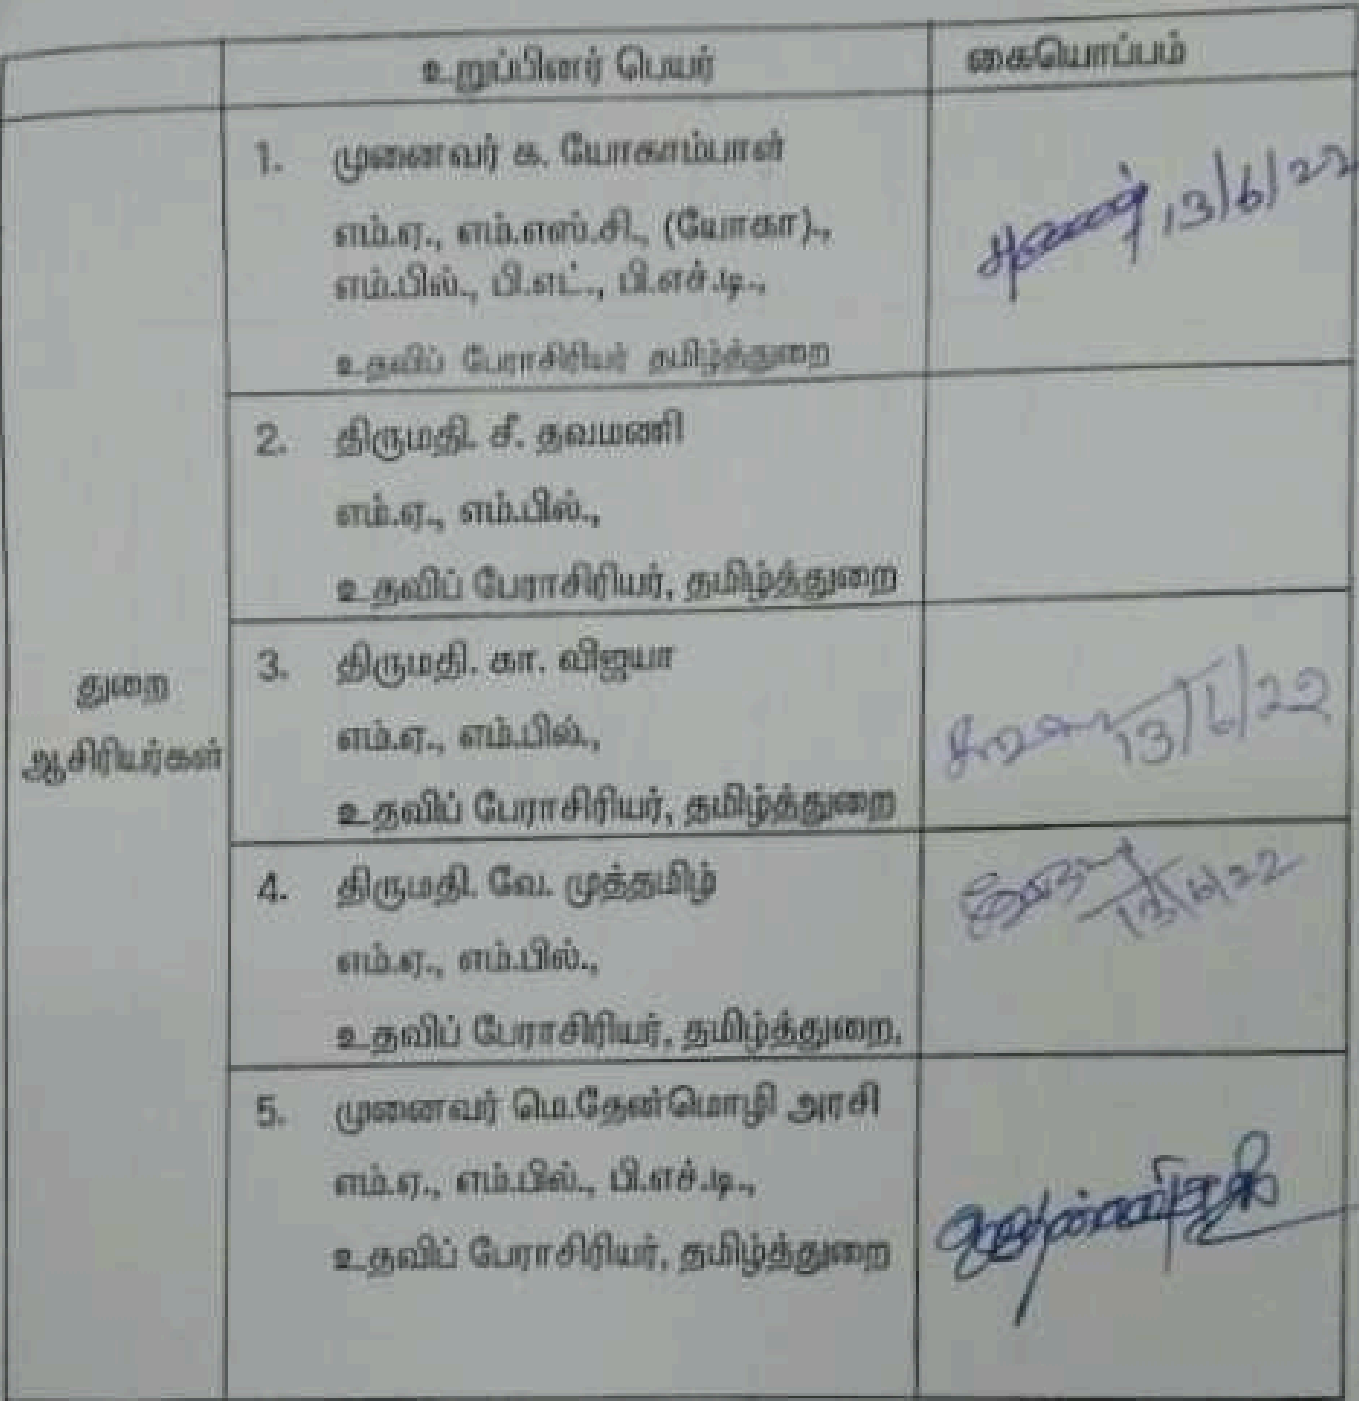 உறுப்பினர் பெயர் கையொப்பம்
துறை
ஆசிரியர்கள்
1. முனைவர் க. யோகாம்பாள்
எம்.ஏ., எம்.எஸ்.சி., (யோகா).,
எம்.பில்., பி.எட்., பி.எச்.டி.,
உதவிப் பேராசிரியர் தமிழ்த்துறை
13/6/22
2. திருமதி. சீ. தவமணி
எம்.ஏ., எம்.பில்.,
உதவிப் பேராசிரியர், தமிழ்த்துறை
3. திருமதி. கா. விஜயா
எம்.ஏ., எம்.பில்.,
உதவிப் பேராசிரியர், தமிழ்த்துறை
13/6/22
4. திருமதி. வே. முத்தமிழ்
எம்.ஏ., எம்.பில்.,
உதவிப் பேராசிரியர், தமிழ்த்துறை.
13/6/22
5. முனைவர் மெ.தேன்மொழி அரசி
எம்.ஏ., எம்.பில்., பி.எச்.டி.,
உதவிப் பேராசிரியர், தமிழ்த்துறை